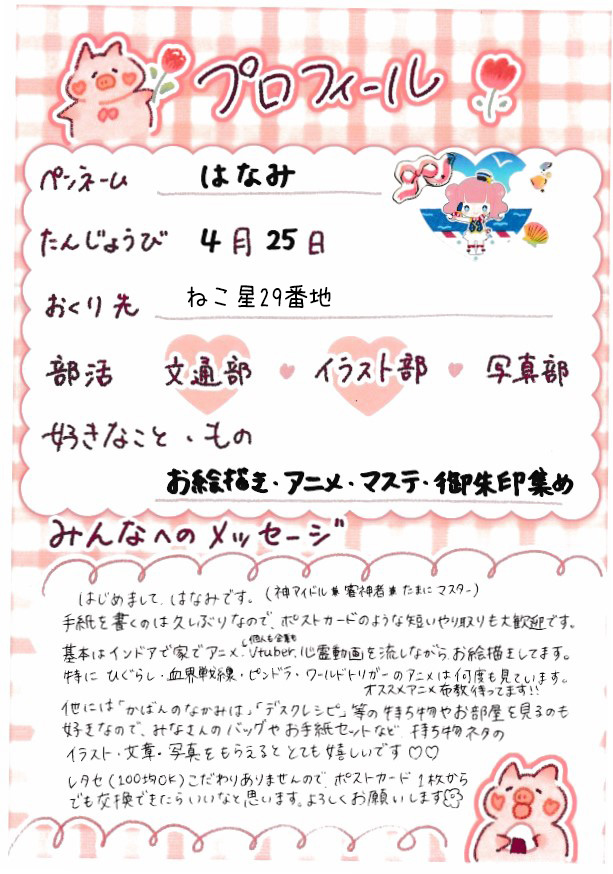 プロフィール
ペンネーム はなみ
たんじょうび 4月25日
おくり先 ねこ星29番地
部活 文通部 イラスト部 写真部
好きなこと・もの
お絵描き・アニメ・マステ・御朱印集め
みんなへのメッセージ
はじめまして、はなみです。(神アイドル*審神者*たまにマスター)
手紙を書くのは久しぶりなので、ポストカードのような短いやり取りも大歓迎です。
個人も企業も
基本はインドアで家でアニメ、Vtuber、心霊動画を流しながらお絵描きしてます。
特に ひぐらし・血界戦線・ピンドラ・ワールドトリガーのアニメは何度も見ています。
オススメアニメ布教待ってます!!
他には「かばんのなかみは」「デスクレシピ」等の持ち物やお部屋を見るのも
好きなので、みなさんのバッグやお手紙セットなど、持ち物ネタの
イラスト・文章・写真をもらえるととても嬉しいです♡♡
レタセ(100均OK)こだわりありませんので、ポストカード1枚から
でも交換できたらいいなと思います。よろしくお願いします